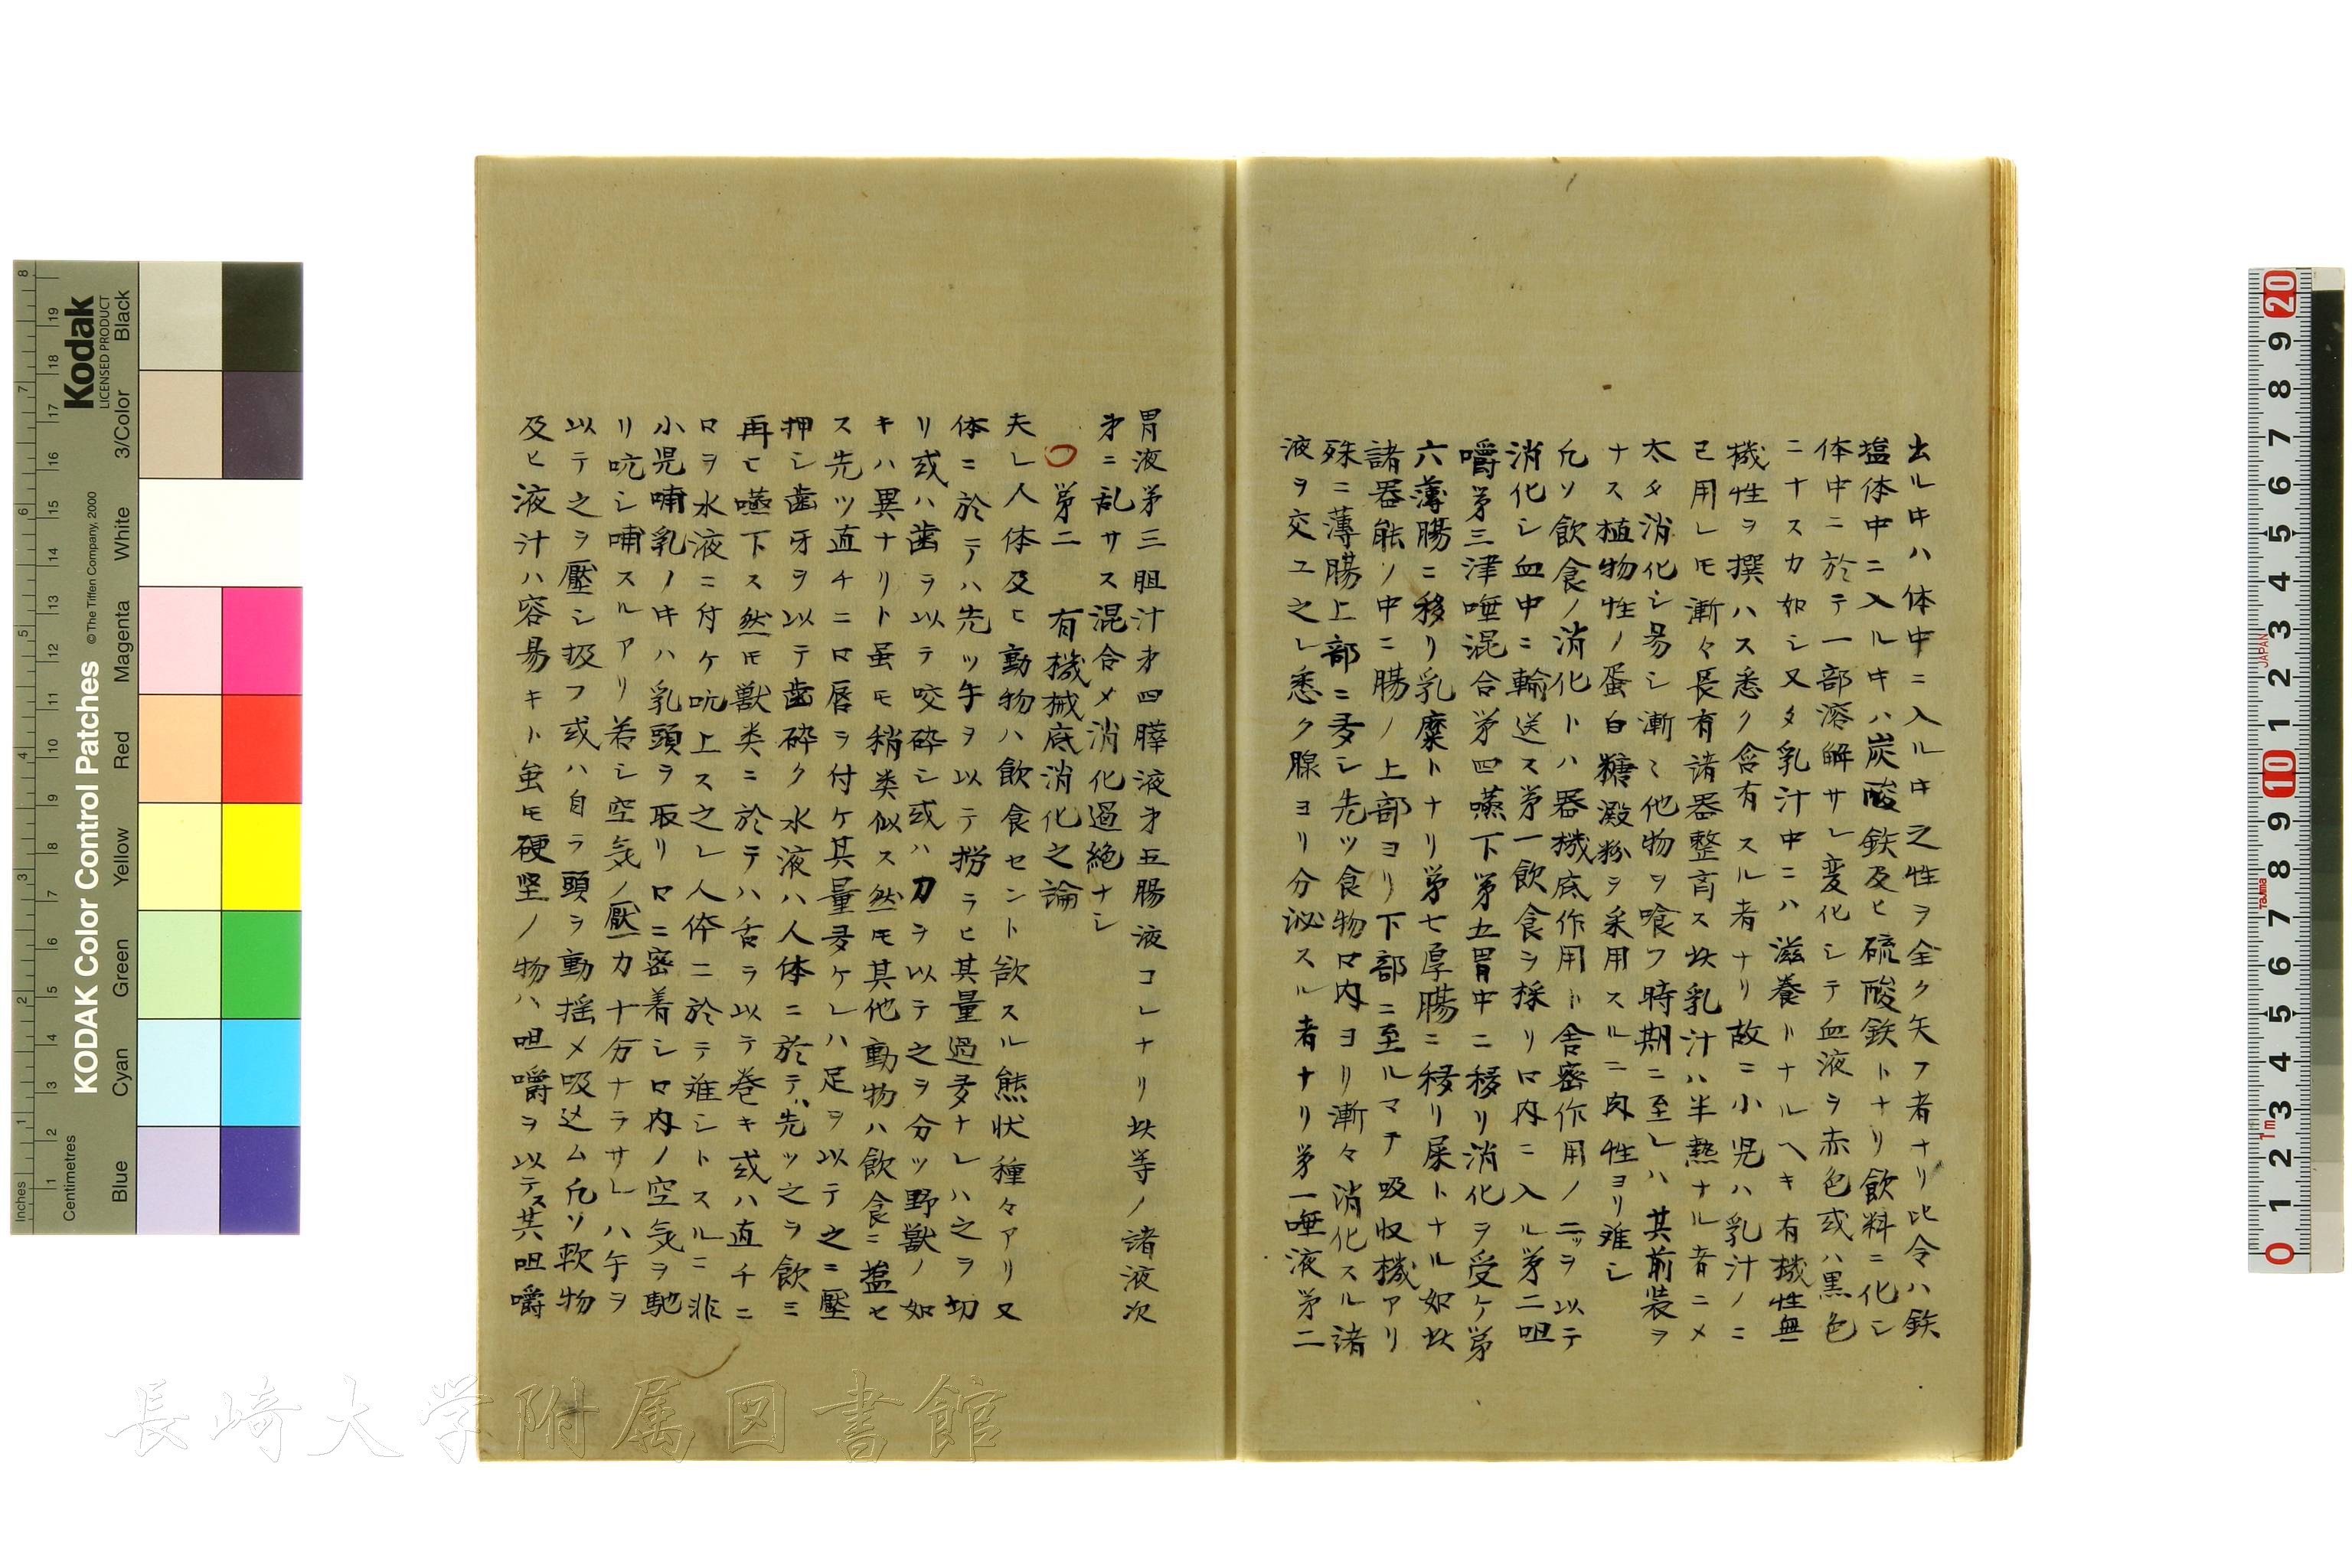 出ル𪜈ハ体中ニ入ル𪜈之性ヲ全ク矢フ者ナリ比令ハ鉄
塩体中ニ入ル𪜈ハ炭酸鉄及ヒ硫酸鉄トナリ飲料ニ化シ
体中ニ於テ一部溶解サレ変化シテ血液ヲ赤色或ハ黒色
ニナスカ如シ又タ乳汁中ニハ滋養トナルヘキ有機性無
機性ヲ撰ハス悉ク含有スル者ナリ故ニ小児ハ乳汁ノニ
已用レ𪜈漸々長有諸器整育ス玆乳汁ハ半熱ナル者ニメ
太タ消化シ易シ漸ミ他物ヲ喰フ時期ニ至レハ其前装ヲ
ナス植物性ノ蛋白糖澱粉ヲ采用スルニ肉性ヨリ难シ
凡ソ飲食ノ消化トハ器機底作用ト舎密作用ノ二ッヲ以テ
消化シ血中ニ輸送ス苐一飲食ヲ採リ口内ニ入ル苐二咀
嚼苐三津唾混合苐四嚥下苐五胃中ニ移リ消化ヲ受ケ苐
六薄腸ニ移リ乳糜トナリ苐七厚腸ニ移リ屎トナル如玆
諸器能ノ中ニ腸ノ上部ヨリ下部ニ至ルマテ吸収機アリ
殊ニ薄腸上部ニ多シ先ツ食物口内ヨリ漸々消化スル諸
液ヲ交ユ之レ悉ク腺ヨリ分泌スル者ナリ苐一唾液苐二
胃液苐三胆汁才四膵液才五腸液コレナリ玆等ノ諸液次
才ニ乱サス混合メ消化過絶ナシ
○苐二 有機械底消化之論
夫レ人体及ヒ動物ハ飲食セント欲スル熊状種々アリ又
体ニ於テハ先ッ手ヲ以テ撈ラヒ其量過多ナレハ之ヲ切
リ或ハ歯ヲ以テ咬砕シ或ハ刀ヲ以テ之ヲ分ッ野獣ノ如
キハ異ナリト虽𪜈稍类似ス然𪜈其他動物ハ飲食ニ盬セ
ス先ツ直チニ口唇ヲ付ケ其量多ケレハ足ヲ以テ之ニ壓
押シ歯牙ヲ以テ歯砕ク水液ハ人体ニ於テハ先ッ之ヲ飲ミ
再ヒ嚥下ス然𪜈獣类ニ於テハ舌ヲ以テ巻キ或ハ直チニ
口ヲ水液ニ付ケ吭上ス之レ人体ニ於テ难シトスルニ非
小児哺乳ノ𪜈ハ乳頭ヲ取リ口ニ密着シ口内ノ空気ヲ馳
リ吭シ哺スルアリ若シ空気ノ壓力十分ナラサレハ手ヲ
以テ之ヲ壓シ扱フ或ハ自ラ頭ヲ動揺メ吸込ム凡ソ軟物
及ヒ液汁ハ容易キト虽𪜈硬坚ノ物ハ咀嚼ヲ以テス其咀嚼
長崎大学附属図書館
KODAK Color Control Patches © The Tiffen Company, 2000
Kodak
LICENSED PRODUCT
Inches
Centimetres
Blue Cyan Green Yellow Red Magenta White 3/Color Black
JAPAN